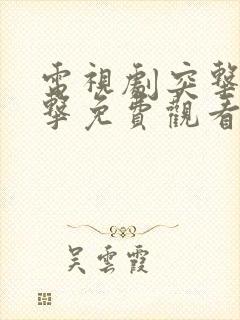 電視劇突擊
擊免費觀看
吴雲霞